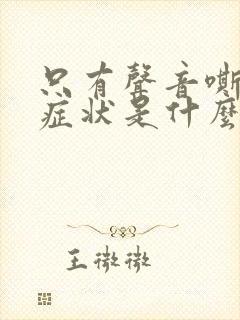 只有聲音嘶
症状是什麼
王微微